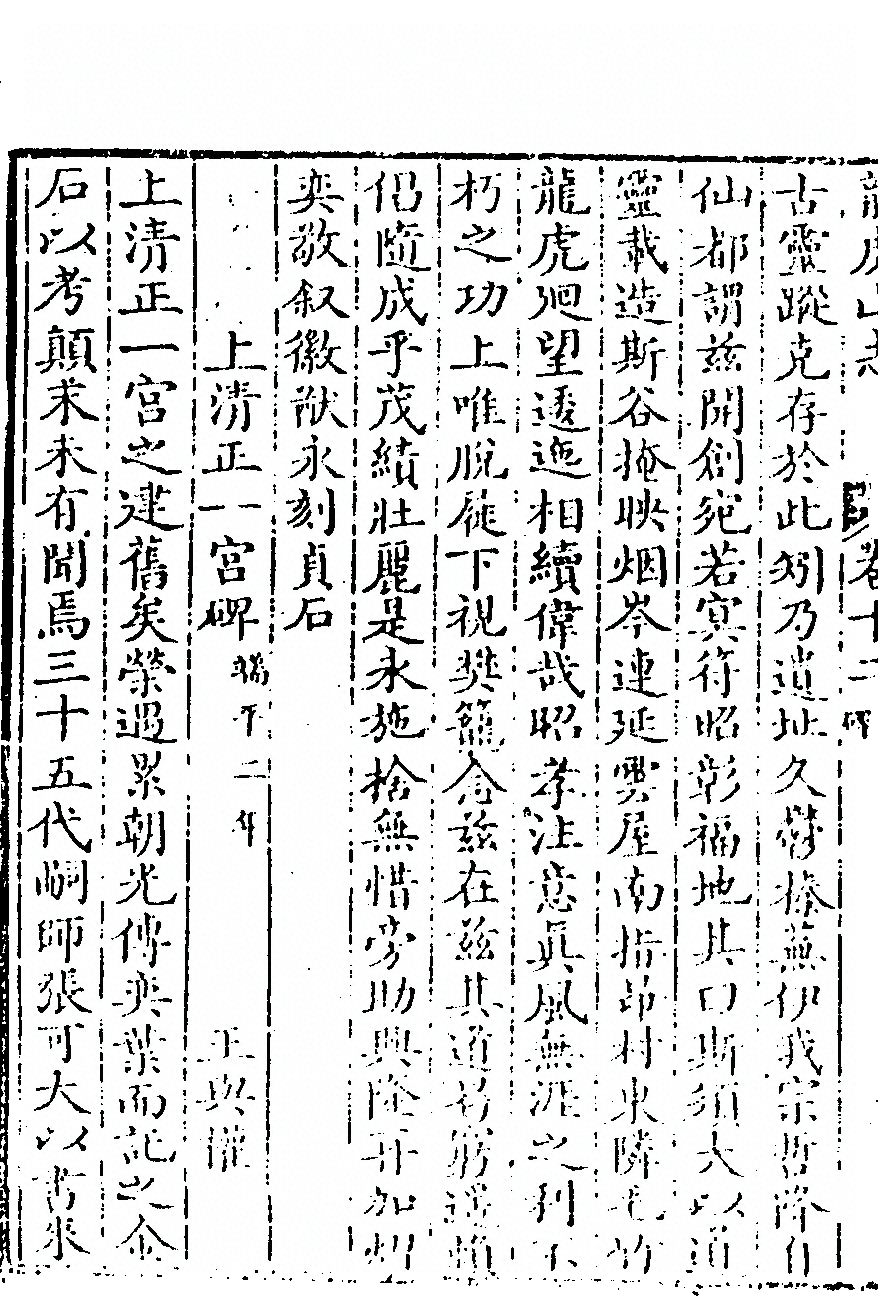 龍虎山志 卷十二 碑
古靈蹤克存於此躬乃遺址久欝榛蕪伊我宗哲降自
仙都謂茲開創宛若冥符昭彰福地其曰斯須大以道
靈載造斯谷掩映烟岑連延雲屋南指昂村東隣毛竹
龍虎廻望逶迤相續偉哉昭孝注意眞風無涯之利不
朽之功上唯脫屣下視樊籠念茲在茲其道曷窮遥
侶隨成乎茂績壯麗是永施捨無惜旁助興隆再加
奕敬叙徽猷永刻貞石
上清正一宮碑 端平二年 王與權
上清正一宮之建舊矣榮遇累朝光傳奕葉而記之金
石以考顛末未有聞焉三十五代嗣師張可大以書來